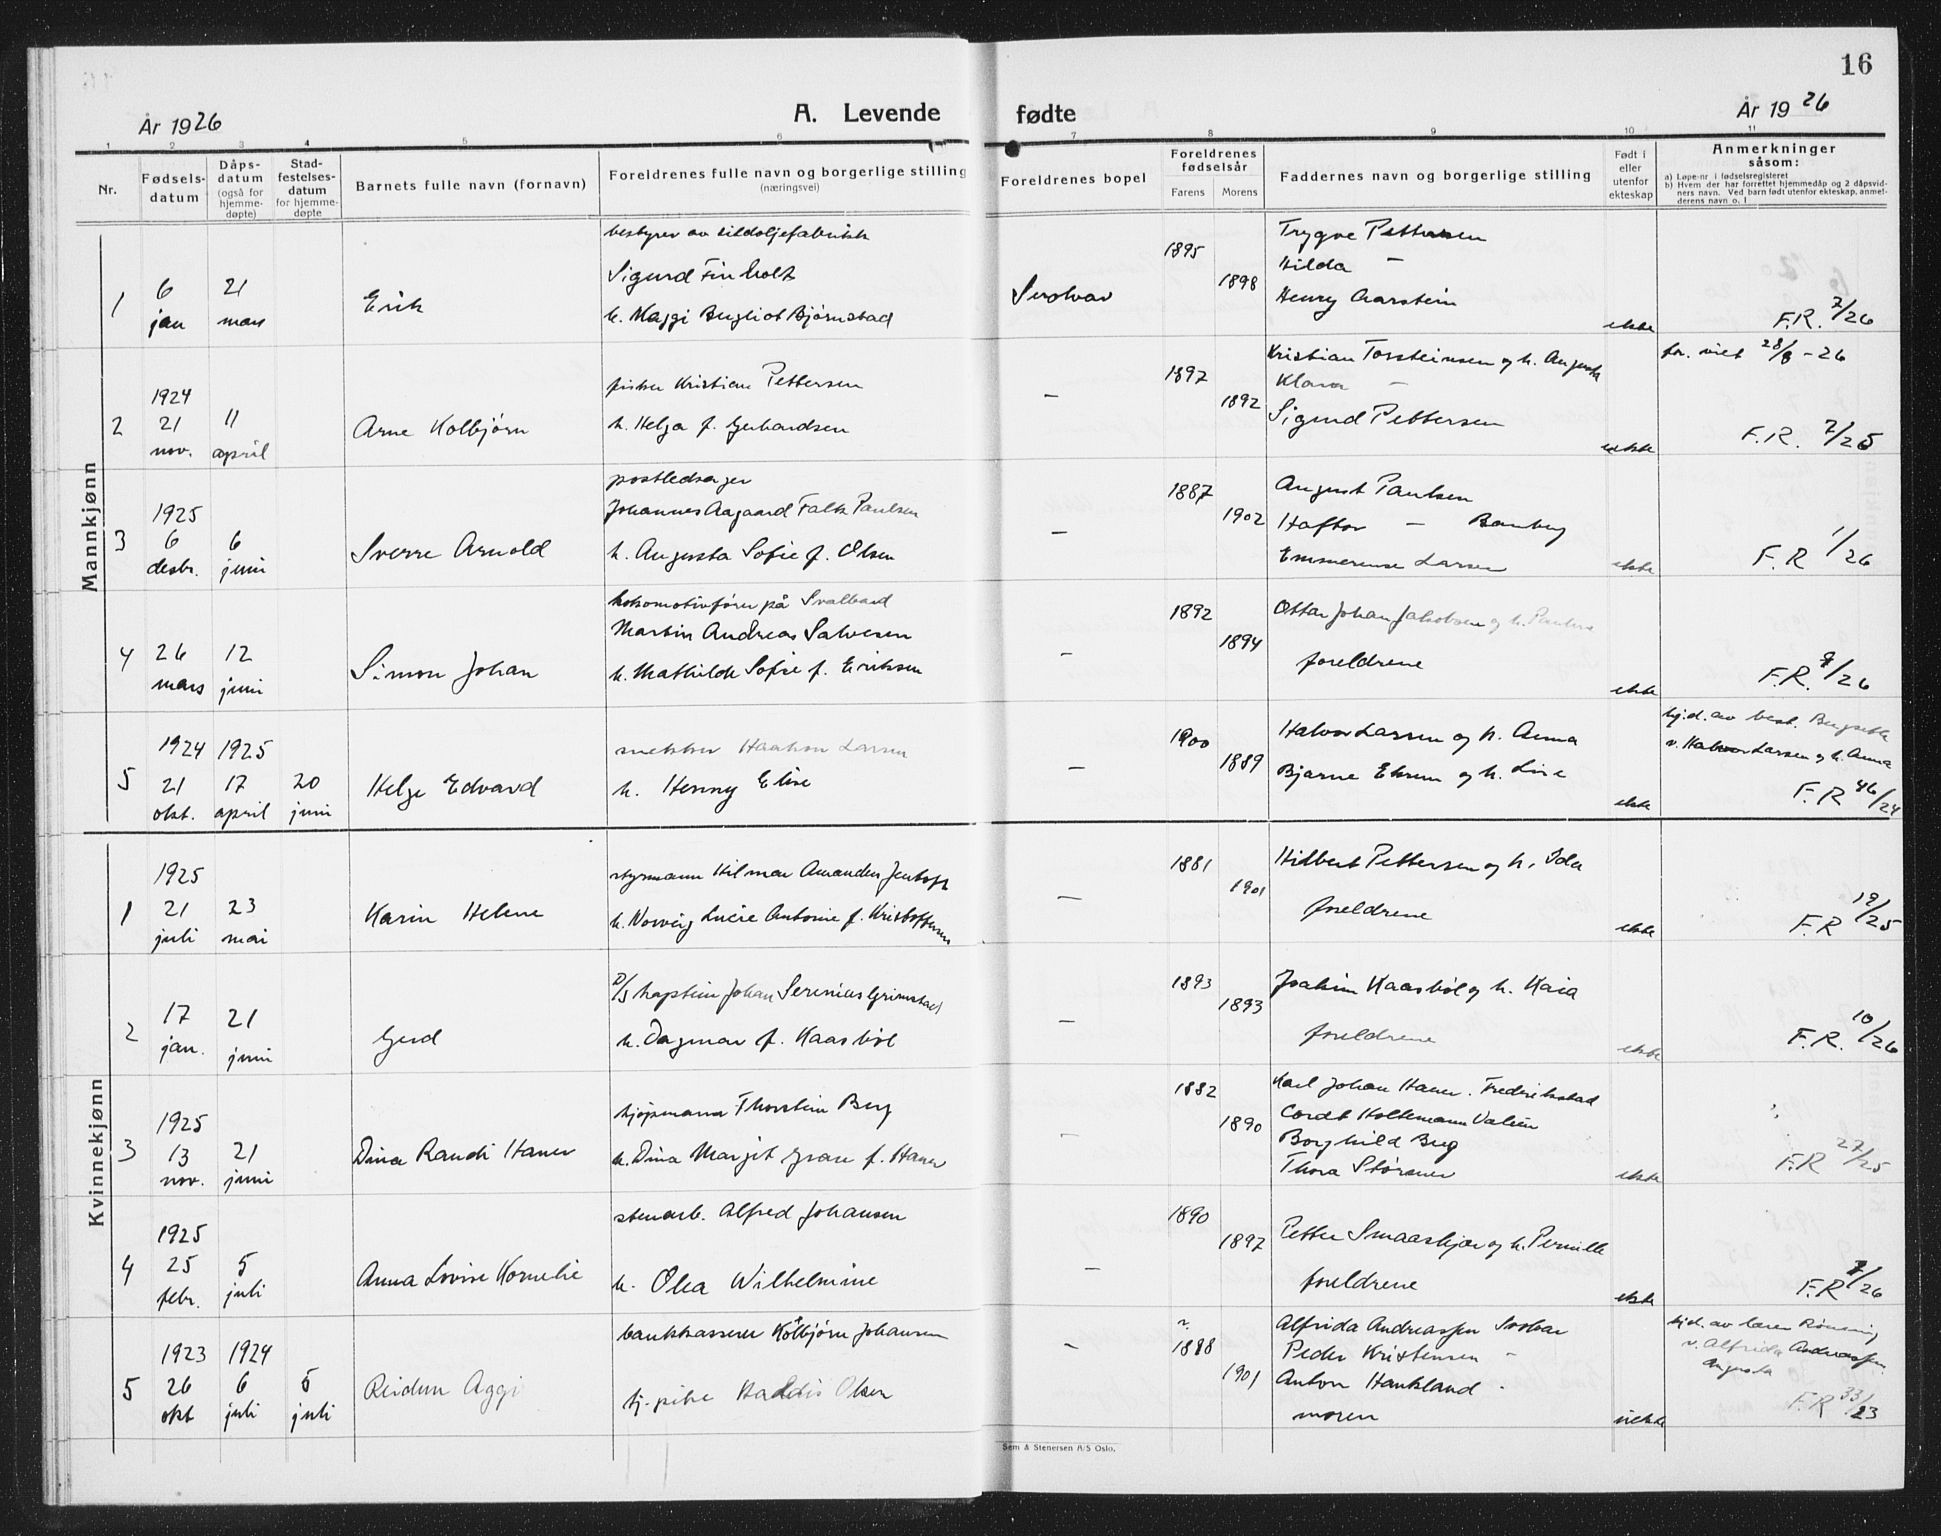 16
År 1926
A. Levende fødte
År 1926
1 2 3 4 5 6 7 8 9 10 11
Nr.
Fødsels-
datum
Dåps-
datum
(også for
hjemme-
døpte)
Stad-
festelses-
datum
for hjemme-
døpte
Barnets fulle navn (fornavn)
Foreldrenes fulle navn og borgerlige stilling
(næringsvei)
Foreldrenes bopel
Foreldrenes
fødselsår
Farens Morens
Faddernes navn og borgerlige stilling
Født i
eller
utenfor
ekteskap
Anmerkninger
såsom:
a) Løpe-nr i fødselsregisteret
b) Hvem der har forrettet hjemmedåp og 2 dåpsvid-
ners navn. Ved barn født utenfor ekteskap, anmel-
derens navn o. l
Mannkjønn
1
6
jan
21
mars
Erik
bestyrer av sildoljefabrikk
Sigurd Finholt
h. Maggi Bergliot Bjørnstad
Svolvær
1895
1898
Trygve Pettersen
Hilda —
Henry Aarstein
ekte
F.R. 7/26
2
1924
21
nov.
11
april
Arne Kolbjørn
fisker Kristian Pettersen
h. Helga f. Gerhardsen
—
1897
1892
Kristian Torsteinsen og h. Augusta
Klara —
Sigurd Pettersen
ekte
for. viet 28/8 - 26
F.R. 7/25
3
1925
6
desbr.
6
juni
Sverre Arnold
postledsager
Johannes Aagaard Falk Paulsen
h. Augusta Sofie f. Olsen
—
1887
1902
August Paulsen
Haftor — Bamberg
Emmerense Larsen
ekte
F.R 1/26
4
26
mars
12
juni
Simon Johan
lokomotivfører på Svalbard
Martin Andreas Salvesen
h. Mathilde Sofie f. Eriksen
—
1892
1894
Ottar Johan Jakobsen og h. Paula
foreldrene
ekte
F.R. 9/26
5
1924
21
okt.
1925
17
april
20
juni
Helge Edvard
snekker Haakon Larsen
h. Henny Elise
—
1900
1889
Halvor Larsen og h. Anna
Bjarne Eksem og h. Lise
ekte
hj.d. av best.
v. Halvor Larsen og h. Anna
F.R 46/24
Kvinnekjønn
1
1925
21
juli
23
mai
Karin Helene
styrmann Hilmar Amandus Jentoft
h. Norveig Lucie Antonie f. Kristoffersen
—
1881
1901
Hilbert Pettersen og h. Ida
foreldrene
ekte
F.R 19/25
2
17
jan.
21
juni
Gerd
D/S kaptein Johan Serenius Grimstad
h. Dagmar f. Kaasbøl
—
1893
1893
Joakim Kaasbøl og h. Kaia
foreldrene
ekte
F.R. 10/26
3
1925
13
nov.
21
juni
Dina Randi Haner
kjøpmann Thorstein Berg
h. Dina Margit Grace f. Haner
—
1882
1890
Karl Johan Haner. Frederikstad
Cordt Holtemann Valeur
Borghild Berg
Thora Størmer
ekte
F.R 27/25
4
1925
25
febr.
5
juli
Anna Lovise Kornelie
stenarb. Alfred Johansen
h. Olea Wilhelmine
—
1890
1897
Petter Smaaskjær og h. Pernille
foreldrene
ekte
F.R 7/26
5
1923
26
okt
1924
6
juli
5
juli
Reidun Aggi
bankkasserer Kolbjørn Johansen
tj.pike Haldis Olsen
—
1888
1901
Alfrida Andreassen Svolvær
Peder Kristensen —
Anton Haukland -
moren
uekte
hj.d. av lærer Rønning
v. Alfrida Andreassen
Augusta
F.R 33/23
Sem & Stenersen A/S Oslo.